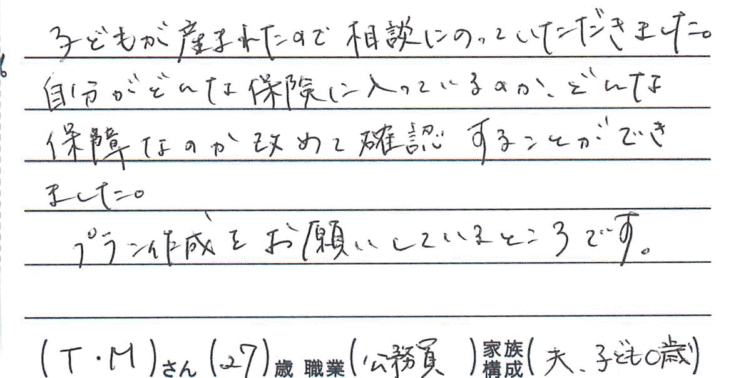 子どもが産まれたので相談にのっていただきました。
自分がどんな保険に入っているのか、どんな
保障なのか改めて確認することができ
ました。
プラン作成をお願いしているところです。
(T・M)さん(27)歳 職業(公務員)家族構成(夫、子ども0歳)